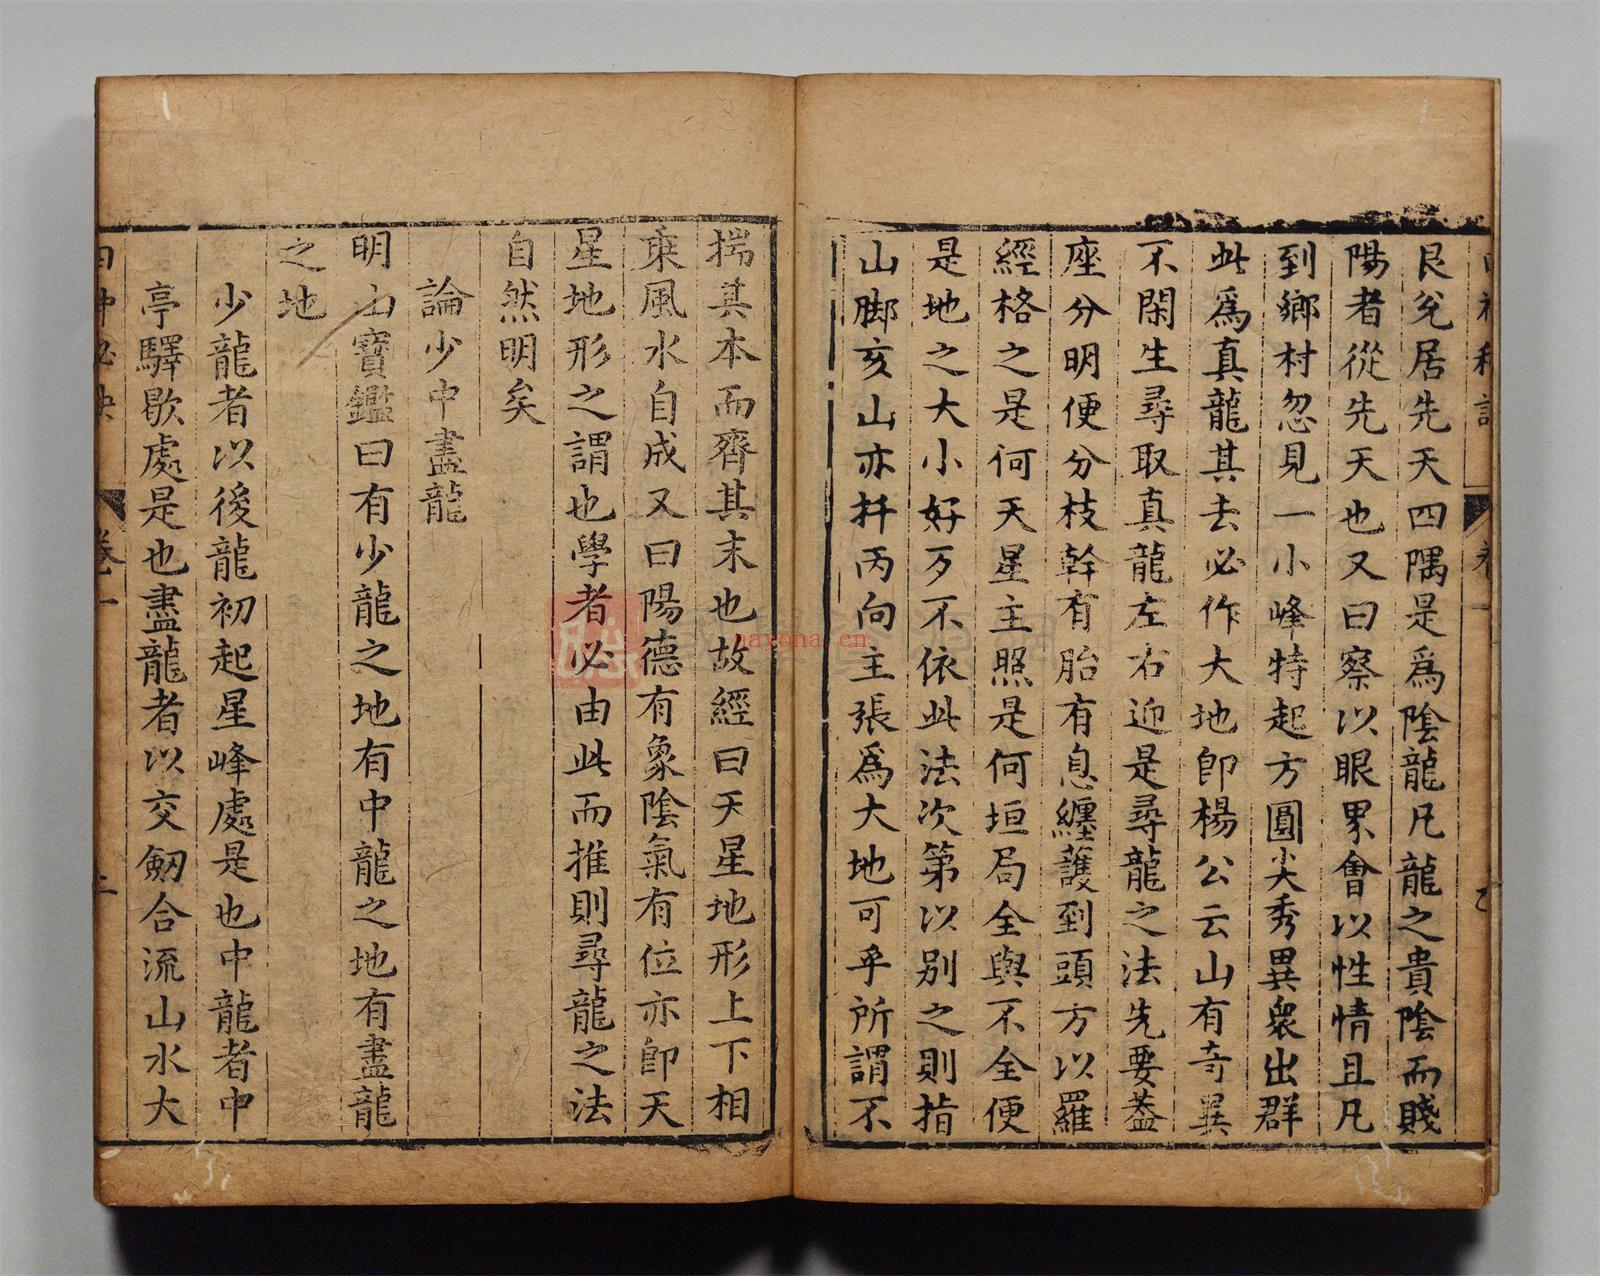 艮兌居先天四隅是爲陰龍凡龍之貴陰而賤
陽者從先天也又曰察以眼界會以性情且凡
到鄉村忽見一小峰特起方圓尖秀異衆出群
此爲真龍其去必作大地卽楊公云山有奇異
不閑生尋取真龍左右迎是尋龍之法先要蓋
座分明便分枝幹有胎有息纏護到頭方以羅
經格之是何天星主照是何垣局全與不全便
是地之大小好歹不依此法次第以別之則指
山脚亥山亦扦丙向主張爲大地可乎所謂不
揣其本而齊其末也故經曰天星地形上下相
乘風水自成又曰陽德有象陰氣有位亦卽天
星地形之謂也學者必由此而推則尋龍之法
自然明矣
論少中盡龍
明山寶鑑曰有少龍之地有中龍之地有盡龍
之地
少龍者以後龍初起星峰處是也中龍者中
亭驛歇處是也盡龍者以交劒合流山水大
卷一
nayona.cn